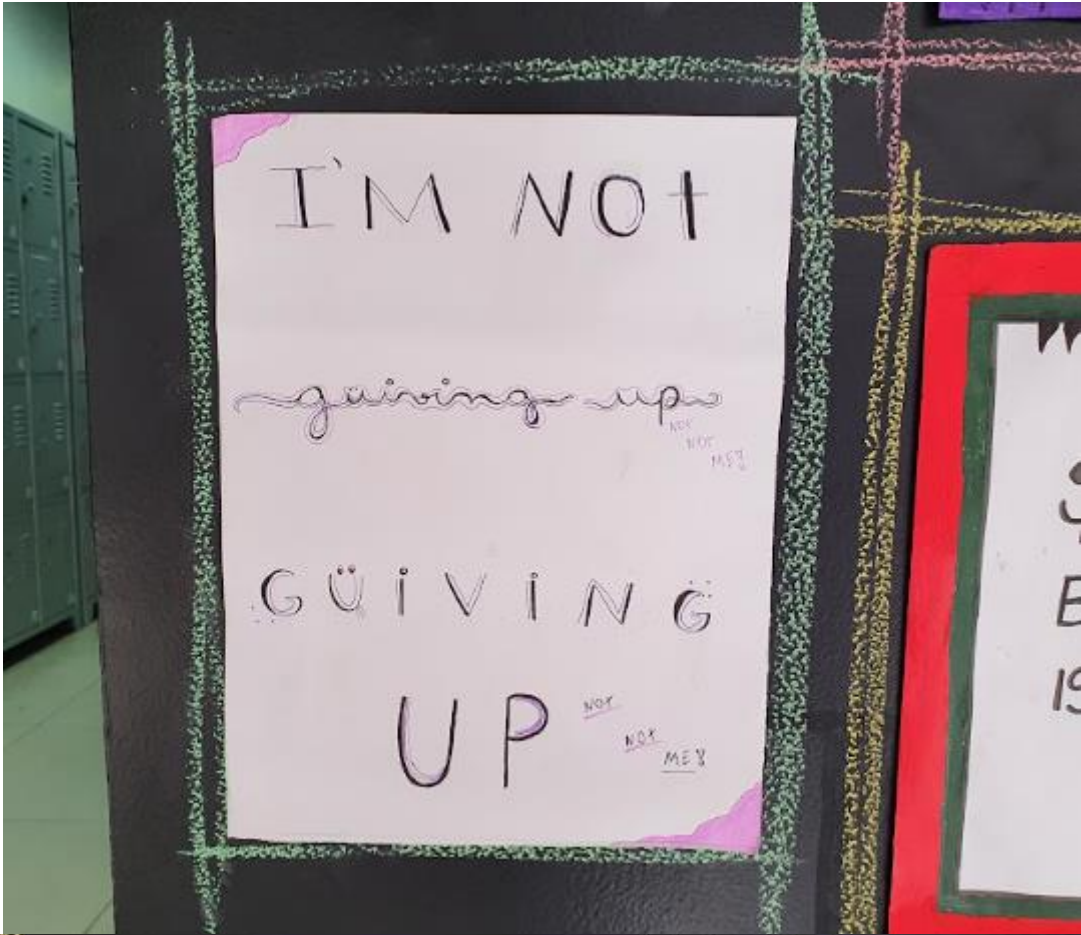 I'M NOt
güiving up
NOt
NOt
ME!
GÜiViNG
UP
NOt
NOt
ME!